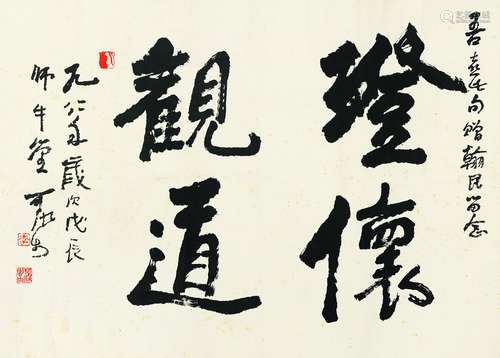 吾喜此句贈翰民留念
澄懷
觀道
一九八八年歲次戊辰
師牛堂 可染書